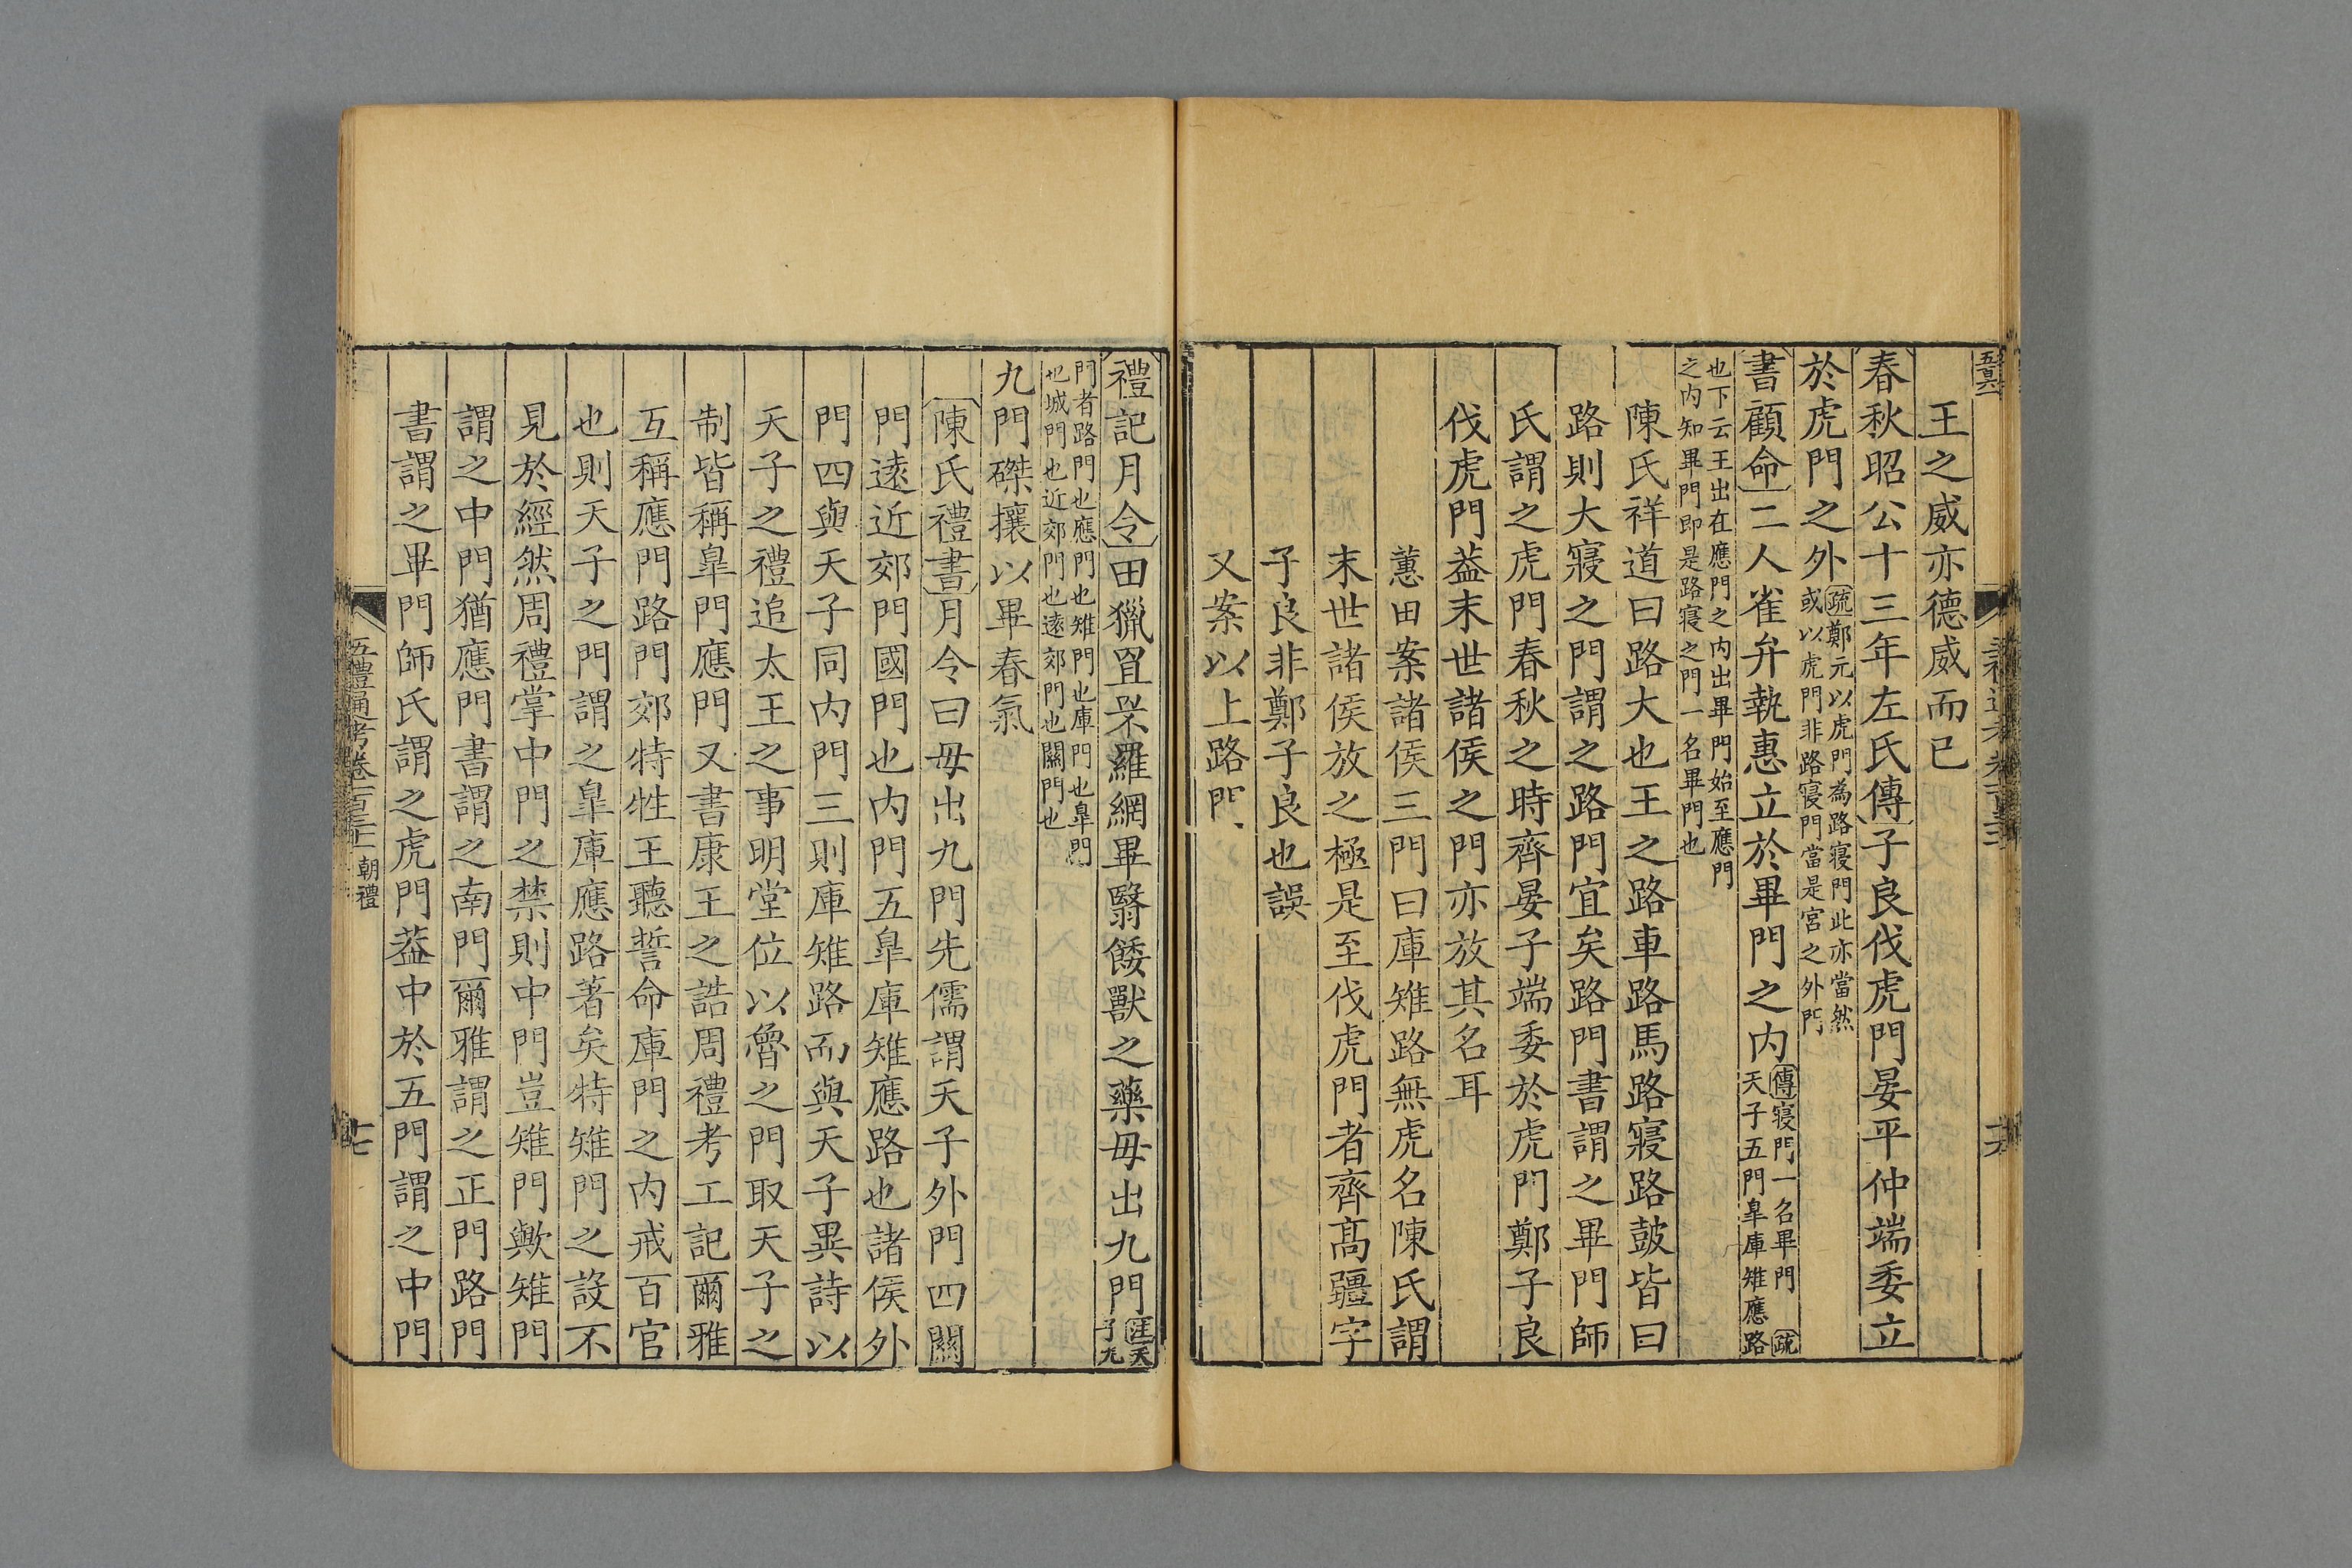 王之威亦德威而已
春秋昭公十三年左氏傳子良伐虎門晏平仲端委立
於虎門之外疏鄭元以虎門為路寢門此亦當然
或以虎門非路寢門當是宮之外門
書顧命二人雀弁執惠立於畢門之內傳寢門一名畢門 疏
天子五門皋庫雉應路
也下云王出在應門之內出畢門始至應門
之內知畢門即是路寢之門一名畢門也
陳氏祥道曰路大也王之路車路馬路寢路鼓皆曰
路則大寢之門謂之路門宜矣路門書謂之畢門師
氏謂之虎門春秋之時齊晏子端委於虎門鄭子良
伐虎門葢末世諸侯之門亦放其名耳
蕙田案諸侯三門曰庫雉路無虎名陳氏謂
末世諸侯放之極是至伐虎門者齊髙疆字
子良非鄭子良也誤
又案以上路門
禮記月令田獵罝罘羅網畢翳餧獸之藥毋出九門注天
子九
門者路門也應門也雉門也庫門也皋門
也城門也近郊門也遠郊門也關門也
九門磔攘以畢春氣
陳氏禮書月令曰毋出九門先儒謂天子外門四關
門遠近郊門國門也內門五皋庫雉應路也諸侯外
門四與天子同內門三則庫雉路而與天子異詩以
天子之禮追太王之事明堂位以魯之門取天子之
制皆稱皋門應門又書康王之誥周禮考工記爾雅
互稱應門路門郊特牲王聽誓命庫門之內戒百官
也則天子之門謂之皋庫應路著矣特雉門之設不
見於經然周禮掌中門之禁則中門豈雉門歟雉門
謂之中門猶應門書謂之南門爾雅謂之正門路門
書謂之畢門師氏謂之虎門葢中於五門謂之中門
五禮通考卷一百三十一 朝禮
十七